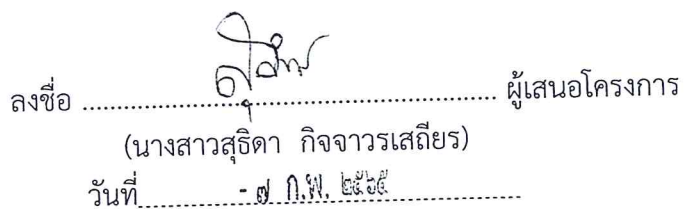 ลงชื่อ ........................................................ ผู้เสนอโครงการ
(นางสาวสุธิดา กิจจาวรเสถียร)
วันที่ - ๗ ก.พ. ๒๕๖๕